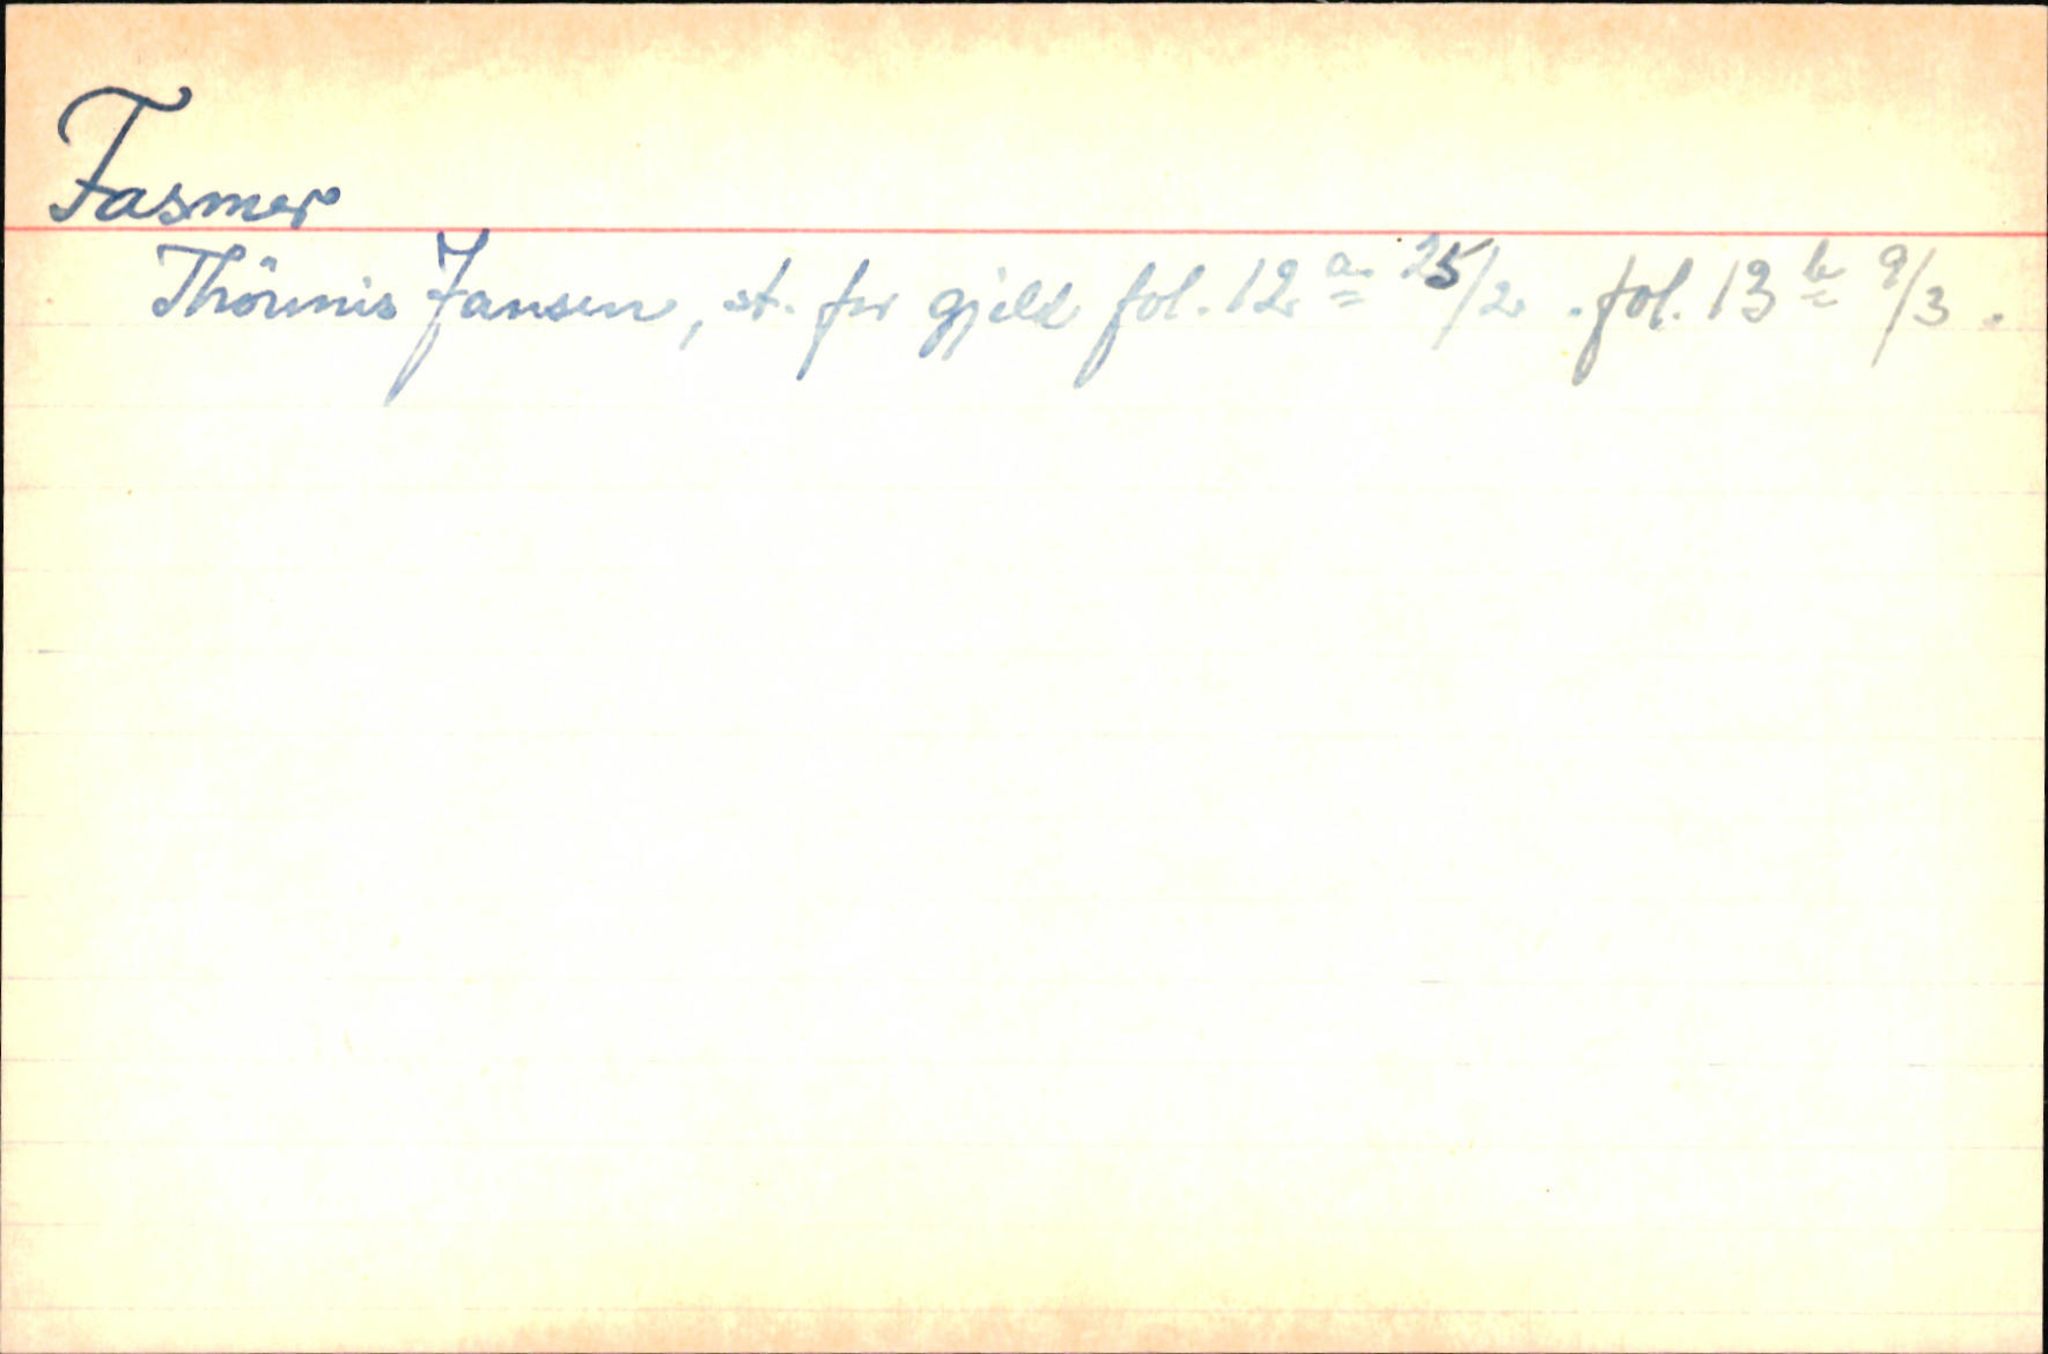 Fasmer
Thönnis Jansen, st. for gjeld fol. 12 a 25/2 . fol. 13 b 9/3 .